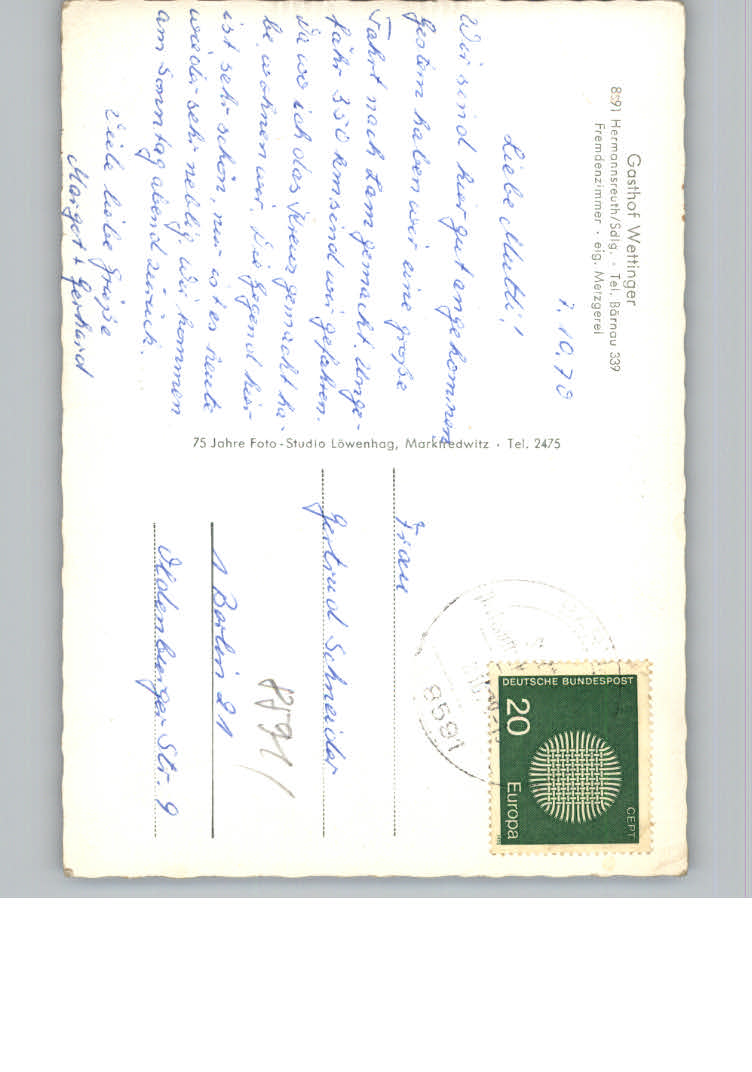 Gasthof Wettinger
8591 Hermannsreuth/Sdlg. · Tel. Bärnau 339
Fremdenzimmer · eig. Metzgerei
7.10.70
Liebe Mutti!
Wir sind hier gut angekommen
Gestern haben wir eine große
Fahrt nach Lam gemacht. Unge-
fähr 350 km sind wir gefahren.
Da wo ich das Kreuz gemacht ha-
be, wohnen wir. Die Gegend hier
ist sehr schön, nur ist es heute
wieder sehr neblig. Wir kommen
am Sonntag abend zurück.
Viele liebe Grüße
Margot + Gerhard
75 Jahre Foto-Studio Löwenhag, Marktredwitz · Tel. 2475
8591
DEUTSCHE BUNDESPOST
20
Europa
CEPT
Frau
Gertrud Schneider
8591
1 Berlin 21
Oldenburger Str. 9